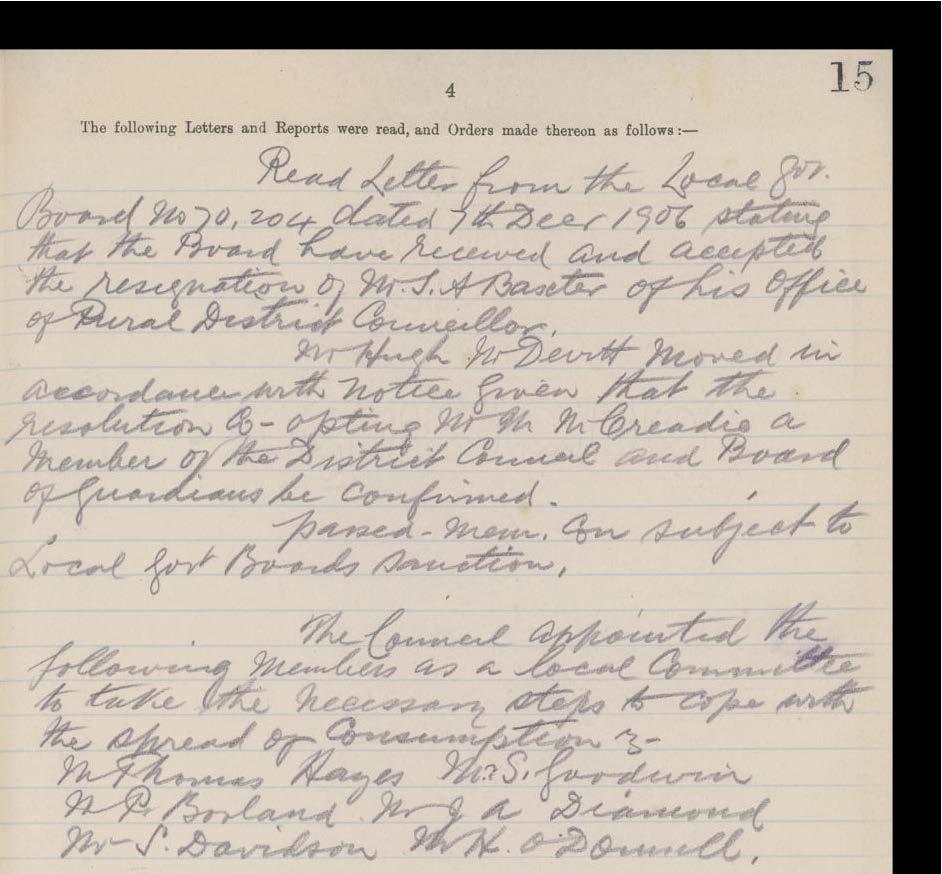 15
4
The following Letters and Reports were read, and Orders made thereon as follows :—
Read Letter from the Local Gov.
Board No 70,204 dated 7th Decr 1906 stating
that the Board have received and accepted
the resignation of Mr. S. A Baxter of his Office
of Rural District Councillor.
Mr Hugh McDevitt Moved in
accordance with Notice Given that the
resolution Co-opting Mr M McCreadie a
Member of the District Council and Board
of Guardians be confirmed.
passed - Nem. Con subject to
Local Govt Boards Sanction.
The Council appointed the
following Members as a local Committee
to take the necessary steps to cope with
the spread of Consumption :-
Mr Thomas Hayes Mr. S. Goodwin
Mr P. Borland Mr J A Diamond
Mr S. Davidson Mr H. O'Donnell.